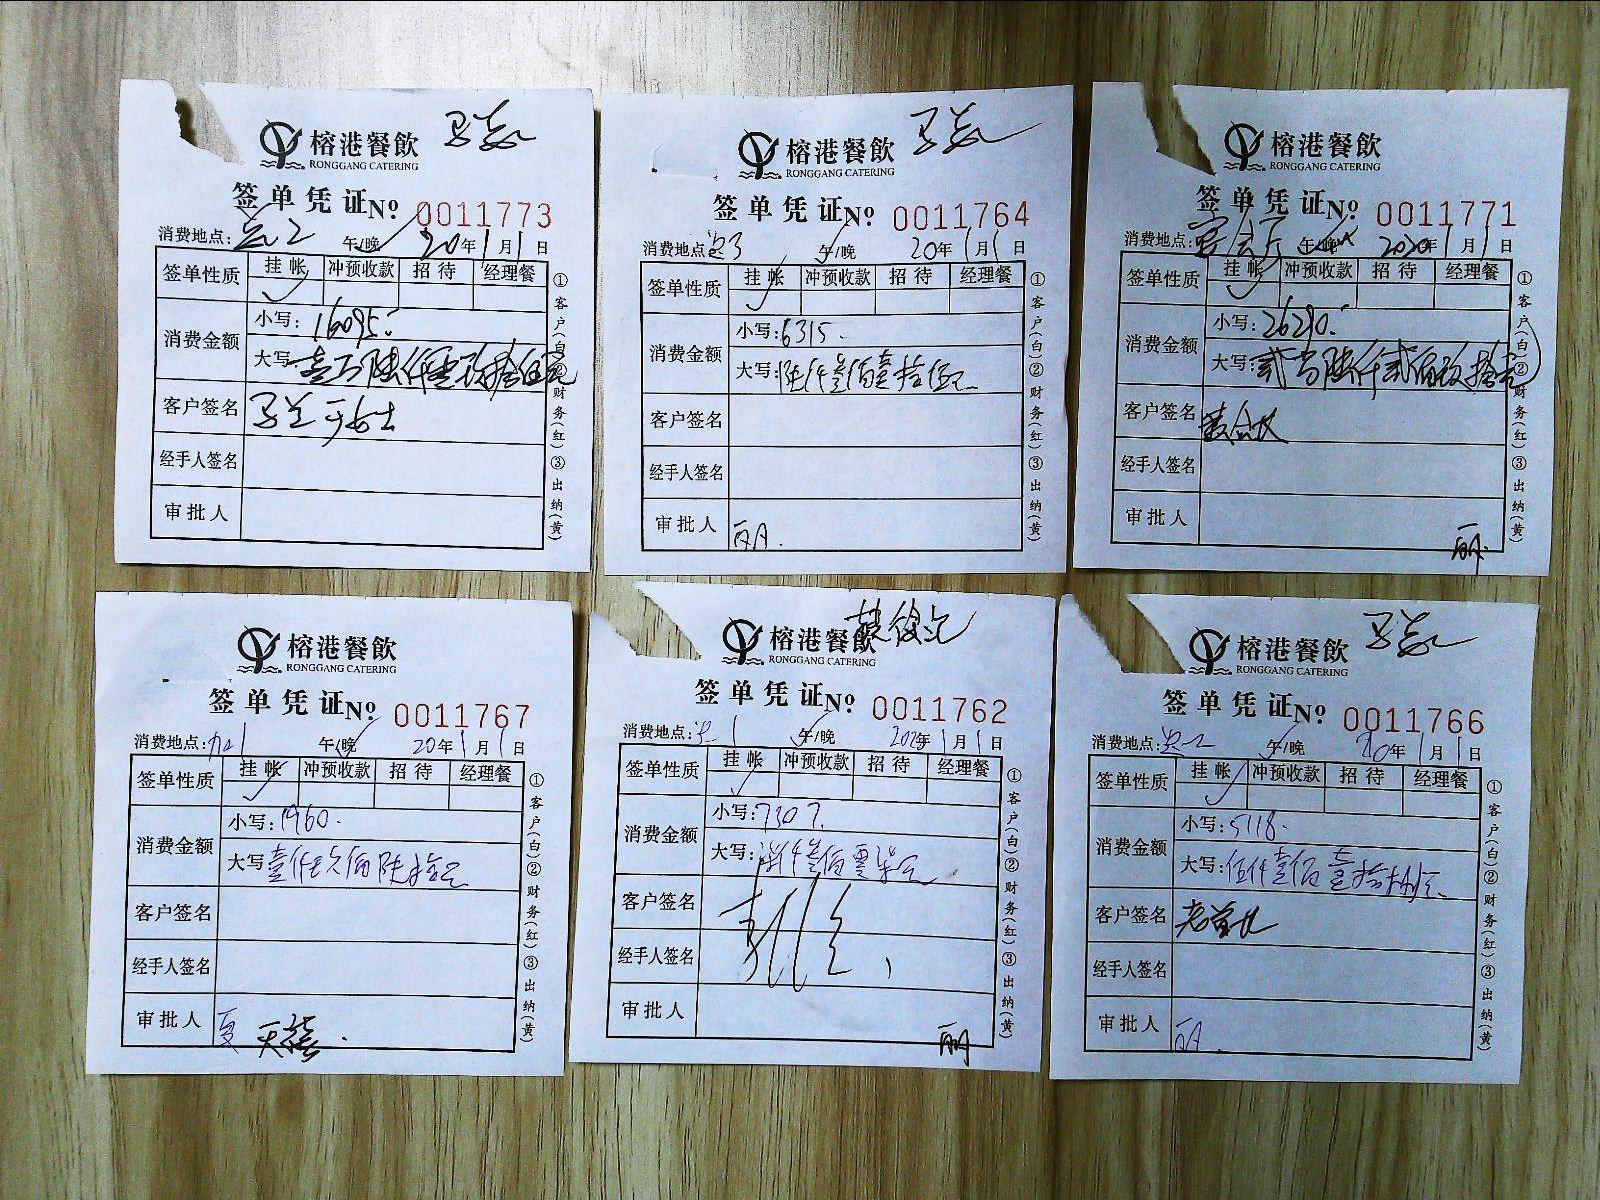 榕港餐飲
RONGGANG CATERING
签单凭证No 0011773
消费地点: 2 午/晚 20年1月1日
签单性质 挂帐 冲预收款 招待 经理餐
消费金额 小写:16095.
大写:壹万陆仟零玖拾伍元
客户签名
经手人签名
审批人
①客户(白)②财务(红)③出纳(黄)
榕港餐飲
RONGGANG CATERING
签单凭证No 0011764
消费地点: 午/晚 20年1月1日
签单性质 挂帐 冲预收款 招待 经理餐
消费金额 小写:6315.
大写:陆仟叁佰壹拾伍元
客户签名
经手人签名
审批人 丽
①客户(白)②财务(红)③出纳(黄)
榕港餐飲
RONGGANG CATERING
签单凭证No 0011771
消费地点: 午/晚 2020年1月1日
签单性质 挂帐 冲预收款 招待 经理餐
消费金额 小写:26290.
大写:贰万陆仟贰佰玖拾元
客户签名
经手人签名
审批人 丽
①客户(白)②财务(红)③出纳(黄)
榕港餐飲
RONGGANG CATERING
签单凭证No 0011767
消费地点: 午/晚 20年1月1日
签单性质 挂帐 冲预收款 招待 经理餐
消费金额 小写:1960.
大写:壹仟玖佰陆拾元
客户签名
经手人签名
审批人 夏
①客户(白)②财务(红)③出纳(黄)
榕港餐飲
RONGGANG CATERING
签单凭证No 0011762
消费地点: 1 午/晚 2020年1月1日
签单性质 挂帐 冲预收款 招待 经理餐
消费金额 小写:7307.
大写:柒仟叁佰零柒元
客户签名
经手人签名
审批人 丽
①客户(白)②财务(红)③出纳(黄)
榕港餐飲
RONGGANG CATERING
签单凭证No 0011766
消费地点: 午/晚 20年1月1日
签单性质 挂帐 冲预收款 招待 经理餐
消费金额 小写:5118.
大写:伍仟壹佰壹拾捌元
客户签名
经手人签名
审批人 丽
①客户(白)②财务(红)③出纳(黄)